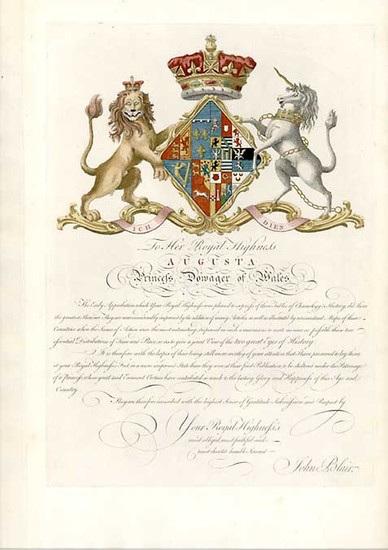 ICH DIEN
To Her Royal Highness
AUGUSTA
Princess Dowager of Wales.
The Early Approbation which Your Royal Highness was pleased to express of these Tables of Chronology & History, did there
the greatest Honour. Encouraged by the addition of many Articles, as well as illustrated by accurate Maps of those
Countries where the Scenes of Action were the most outstanding, prepared in such a manner as to unite as much as possible these two
essential Distinctions of Time and Place, so as to give a joint View of the two great Eyes of History.
It is therefore with the hopes of their being still more worthy of your attention that I have presumed to lay them
at your Royal Highness's Feet, in a more improved State than they were at their first Publication to be sheltered under the Patronage
of a Princess, whose great and Eminent Virtues have contributed so much to the lasting Glory and Happiness of this Age and
Country.
I beg to subscribe myself with the highest Sense of Gratitude Submission and Respect by
Your Royal Highness's
most obliged, most faithful and
most devoted humble Servant
John Blair.